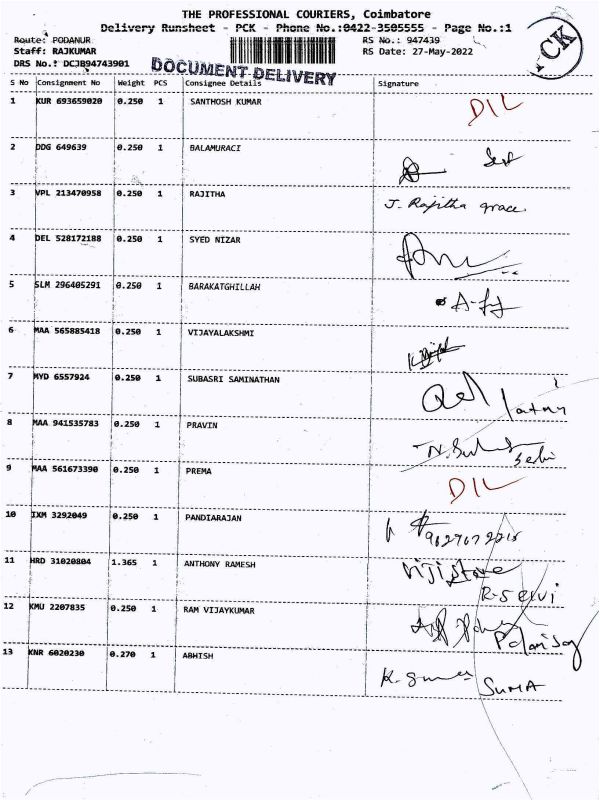 THE PROFESSIONAL COURIERS, Coimbatore
Delivery Runsheet - PCK - Phone No.:0422-3505555 - Page No.:1
Route: PODANUR RS No.: 947439
Staff: RAJKUMAR RS Date: 27-May-2022
DRS No.: DCJB94743901
DOCUMENT DELIVERY
PCK
S No Consignment No Weight PCS Consignee Details Signature
1 KUR 693659020 0.250 1 SANTHOSH KUMAR DIL
2 DDG 649639 0.250 1 BALAMURACI
3 VPL 213470958 0.250 1 RAJITHA J. Rajitha grace
4 DEL 528172188 0.250 1 SYED NIZAR
5 SLM 296405291 0.250 1 BARAKATGHILLAH
6 MAA 565885418 0.250 1 VIJAYALAKSHMI
7 MYD 6557924 0.250 1 SUBASRI SAMINATHAN
8 MAA 941535783 0.250 1 PRAVIN
9 MAA 561673390 0.250 1 PREMA DIL
10 IXM 3292049 0.250 1 PANDIARAJAN
11 HRD 31020804 1.365 1 ANTHONY RAMESH Viji store
R-selvi
12 KMU 2207835 0.250 1 RAM VIJAYKUMAR
13 KNR 6020230 0.270 1 ABHISH SUMA